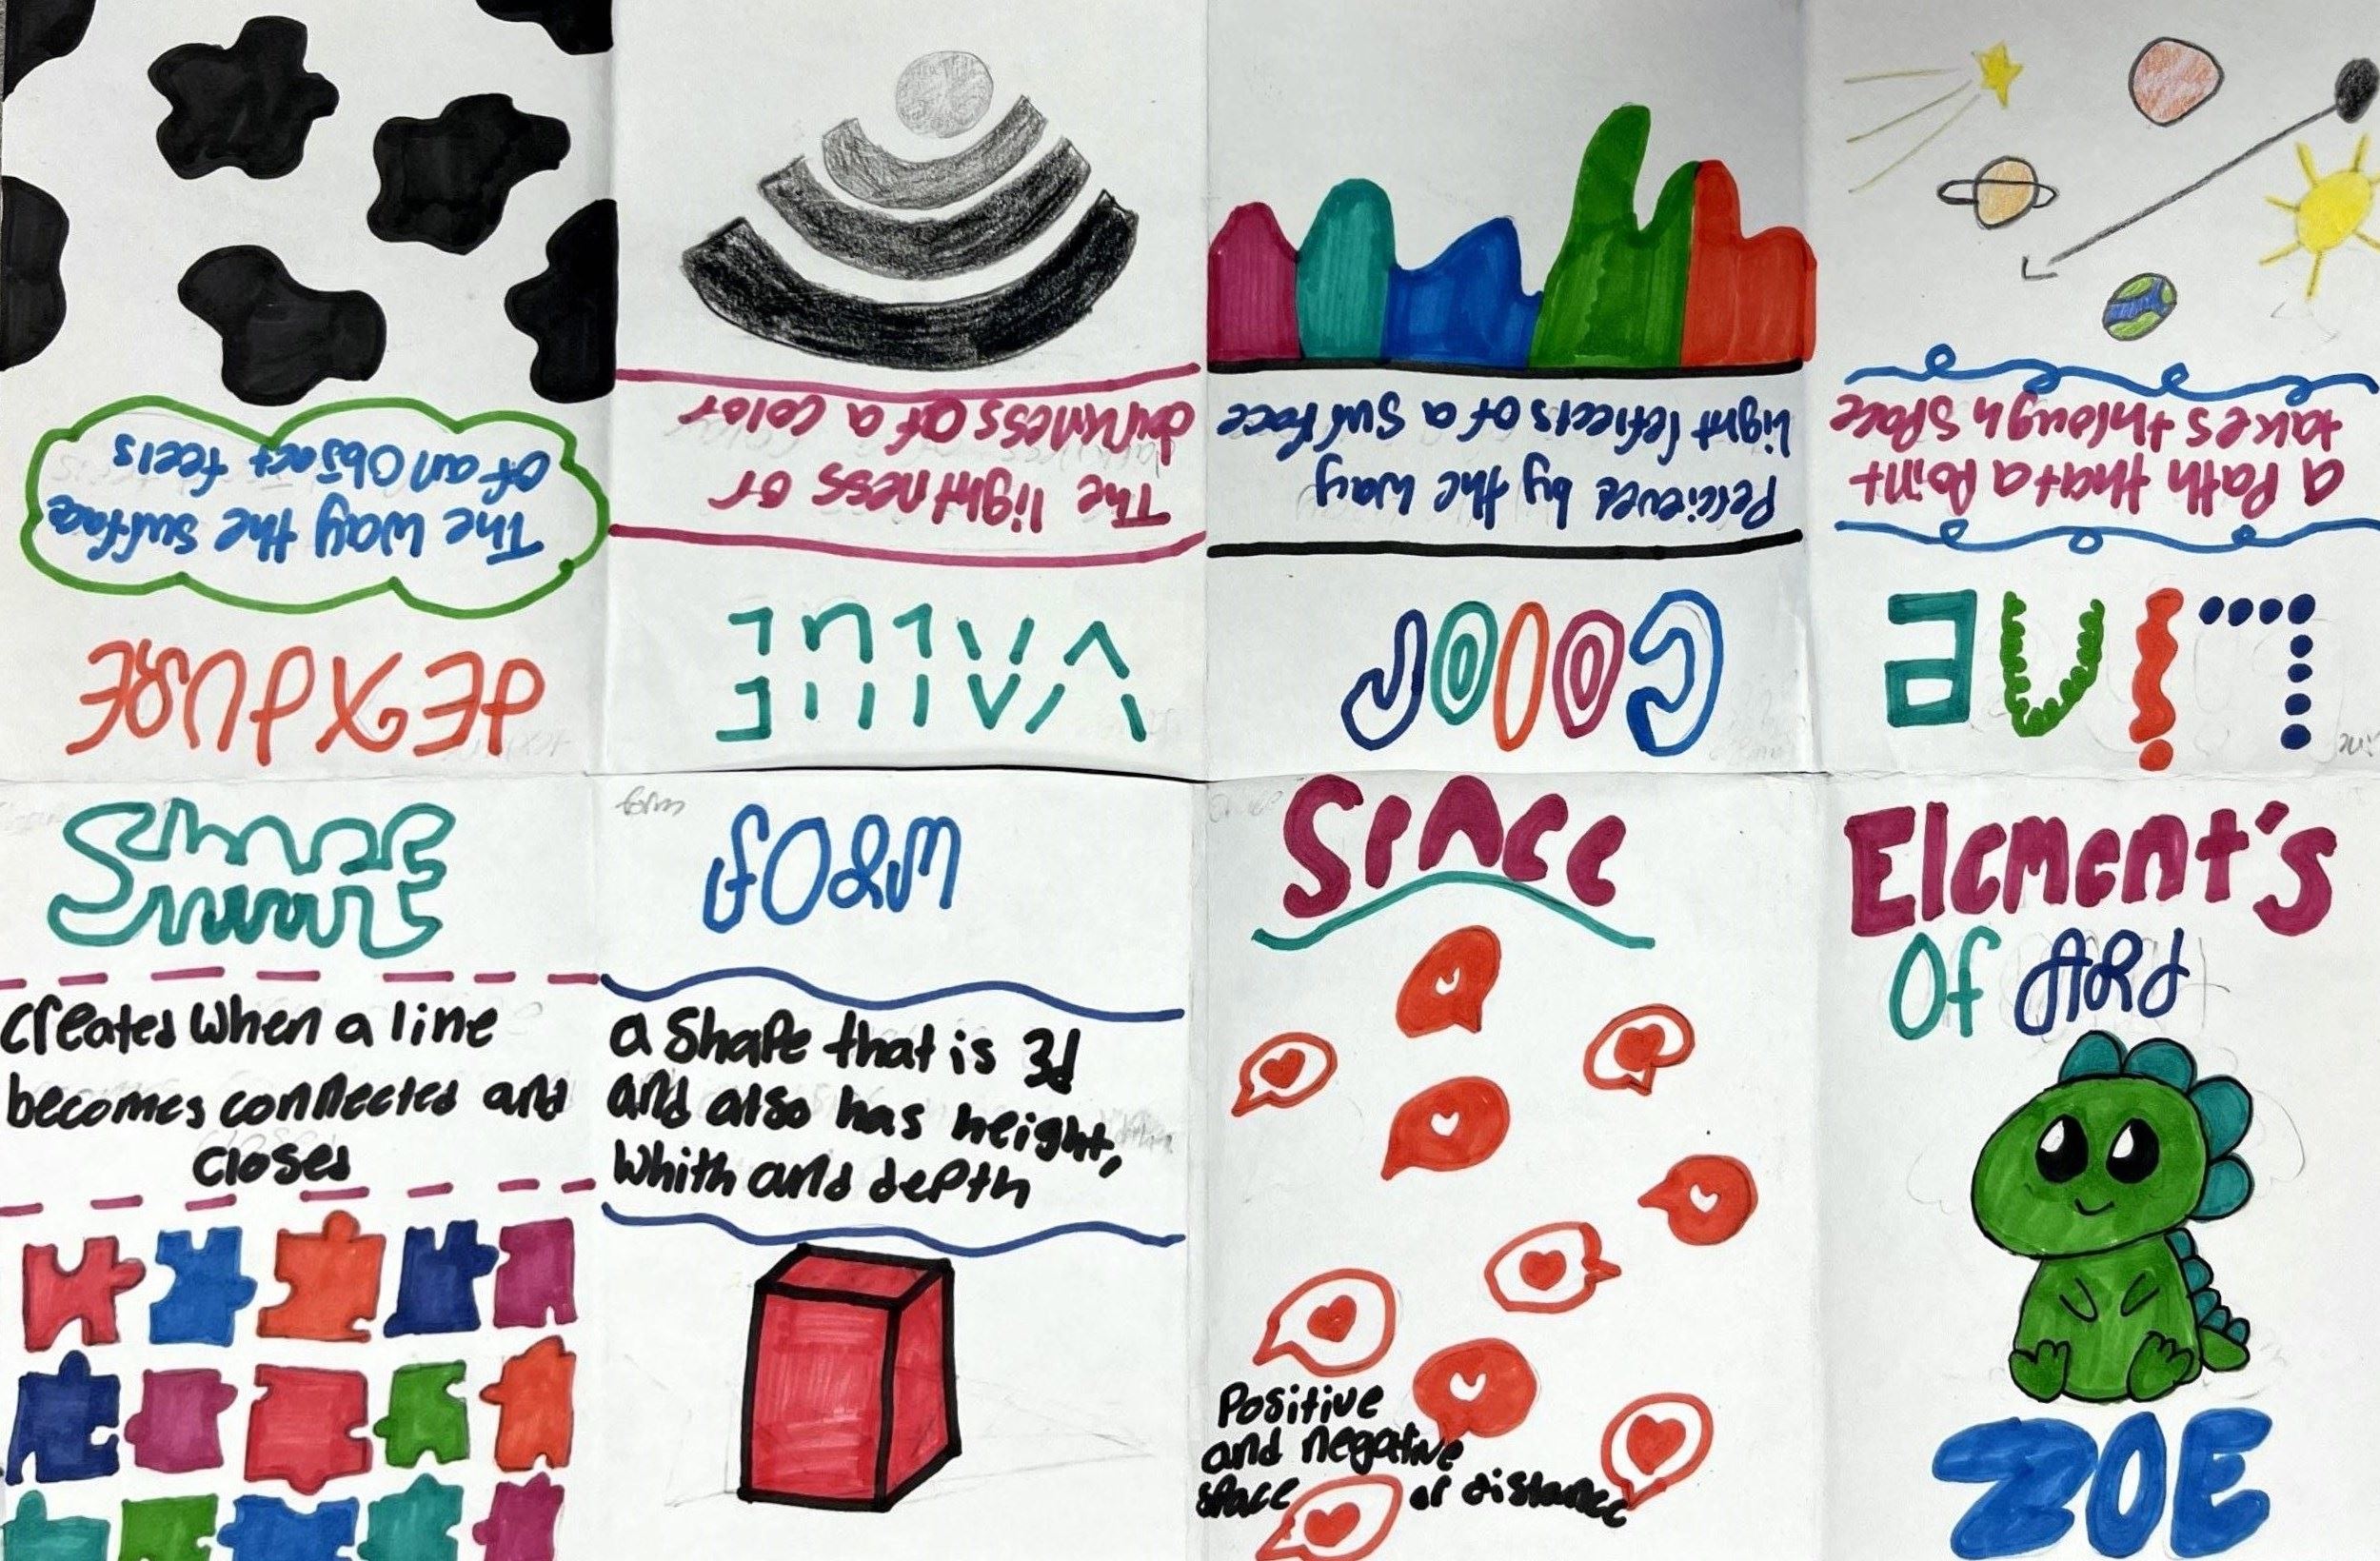 Element's
Of Art
ZOE
Line
a Path that a Point
takes through Space
Color
Percieved by the way
light reflects of a Surface
VALUE
The lightness or
darkness of a color
TEXTURE
The way the surface
of an Object feels
SHAPE
created when a line
becomes connected and
closed
form
FORM
a Shape that is 3d
and also has height,
Whith and depth
SPACE
Positive
and negative
space or distance